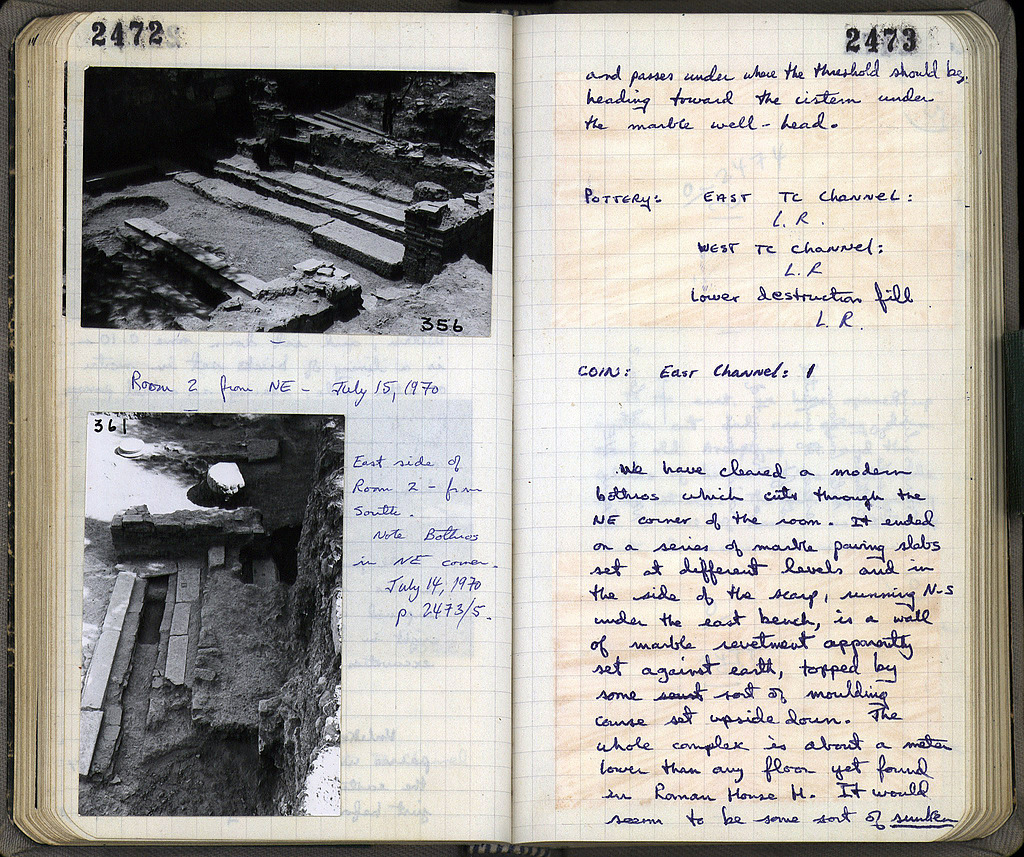 2472
356
Room 2 from NE - July 15, 1970
361
East side of
Room 2 - from
South.
Note Bothros
in NE corner.
July 14, 1970
p. 2473/5.
2473
and passes under where the threshold should be,
heading toward the cistern under
the marble well-head.
POTTERY: EAST TC Channel:
L.R.
WEST TC Channel:
L.R
Lower destruction fill
L.R.
COIN: East Channel: 1
We have cleared a modern
bothros which cuts through the
NE corner of the room. It ended
on a series of marble paving slabs
set at different levels and in
the side of the scarp, running N-S
under the east bench, is a wall
of marble revetment apparently
set against earth, topped by
some sort of moulding
course set upside down. The
whole complex is about a meter
lower than any floor yet found
in Roman House H. It would
seem to be some sort of sunken